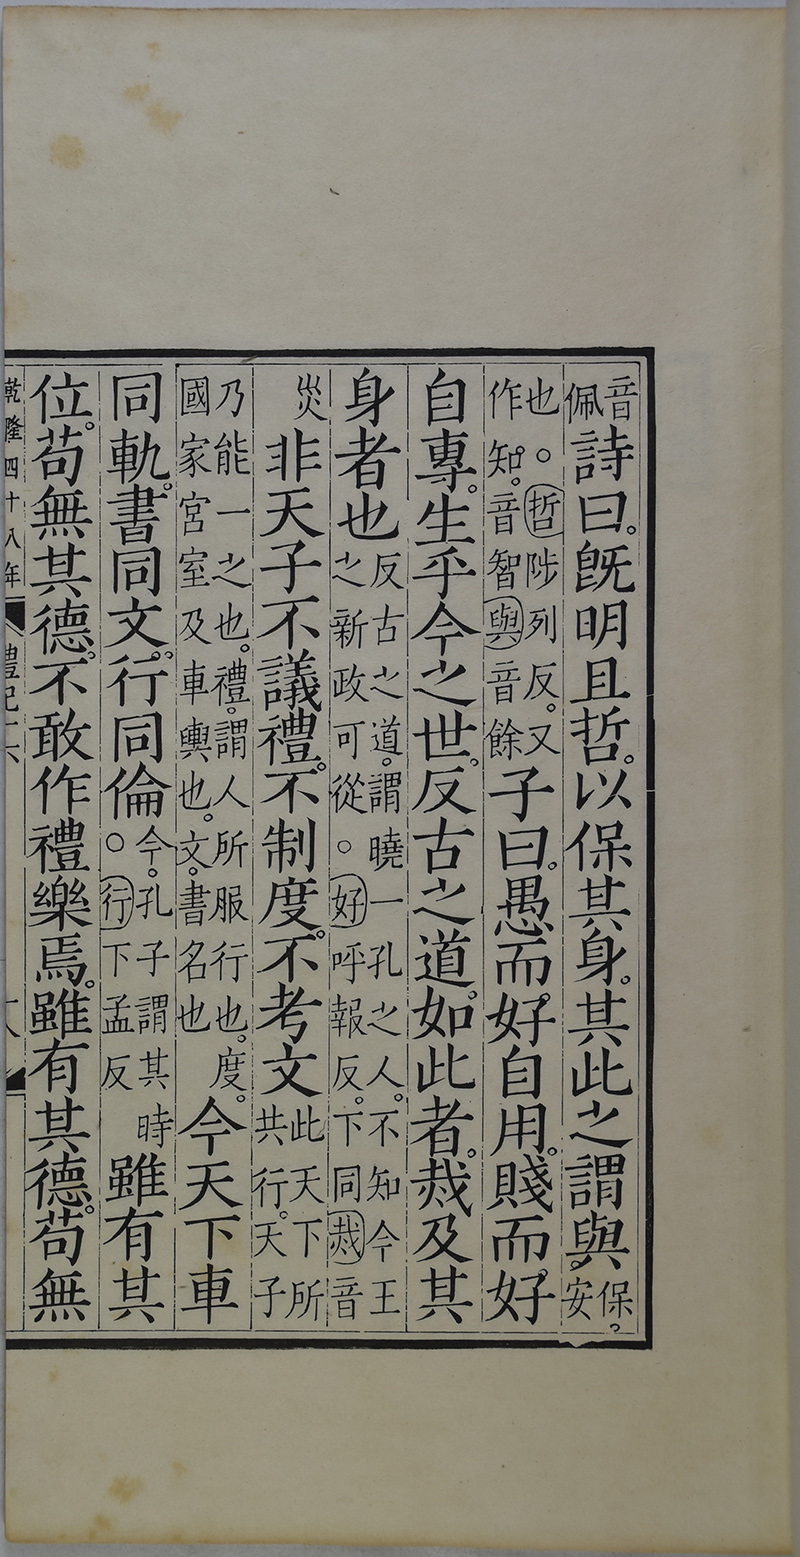 音佩詩曰。旣明且哲。以保其身。其此之謂與。保。安
也。○哲陟列反。又作知。音智與音餘子曰。愚而好自用。賤而好
自專。生乎今之世。反古之道。如此者。烖及其
身者也反古之道。謂曉一孔之人。不知今王之新政可從。○好呼報反。下同烖音
災非天子不議禮。不制度。不考文此天下所共行。天子
乃能一之也。禮。謂人所服行也。度。國家宮室及車輿也。文。書名也今天下車
同軌。書同文。行同倫今。孔子謂其時○行下孟反雖有其
位。苟無其德。不敢作禮樂焉。雖有其德。苟無
乾隆四十八年
禮記十六
十八